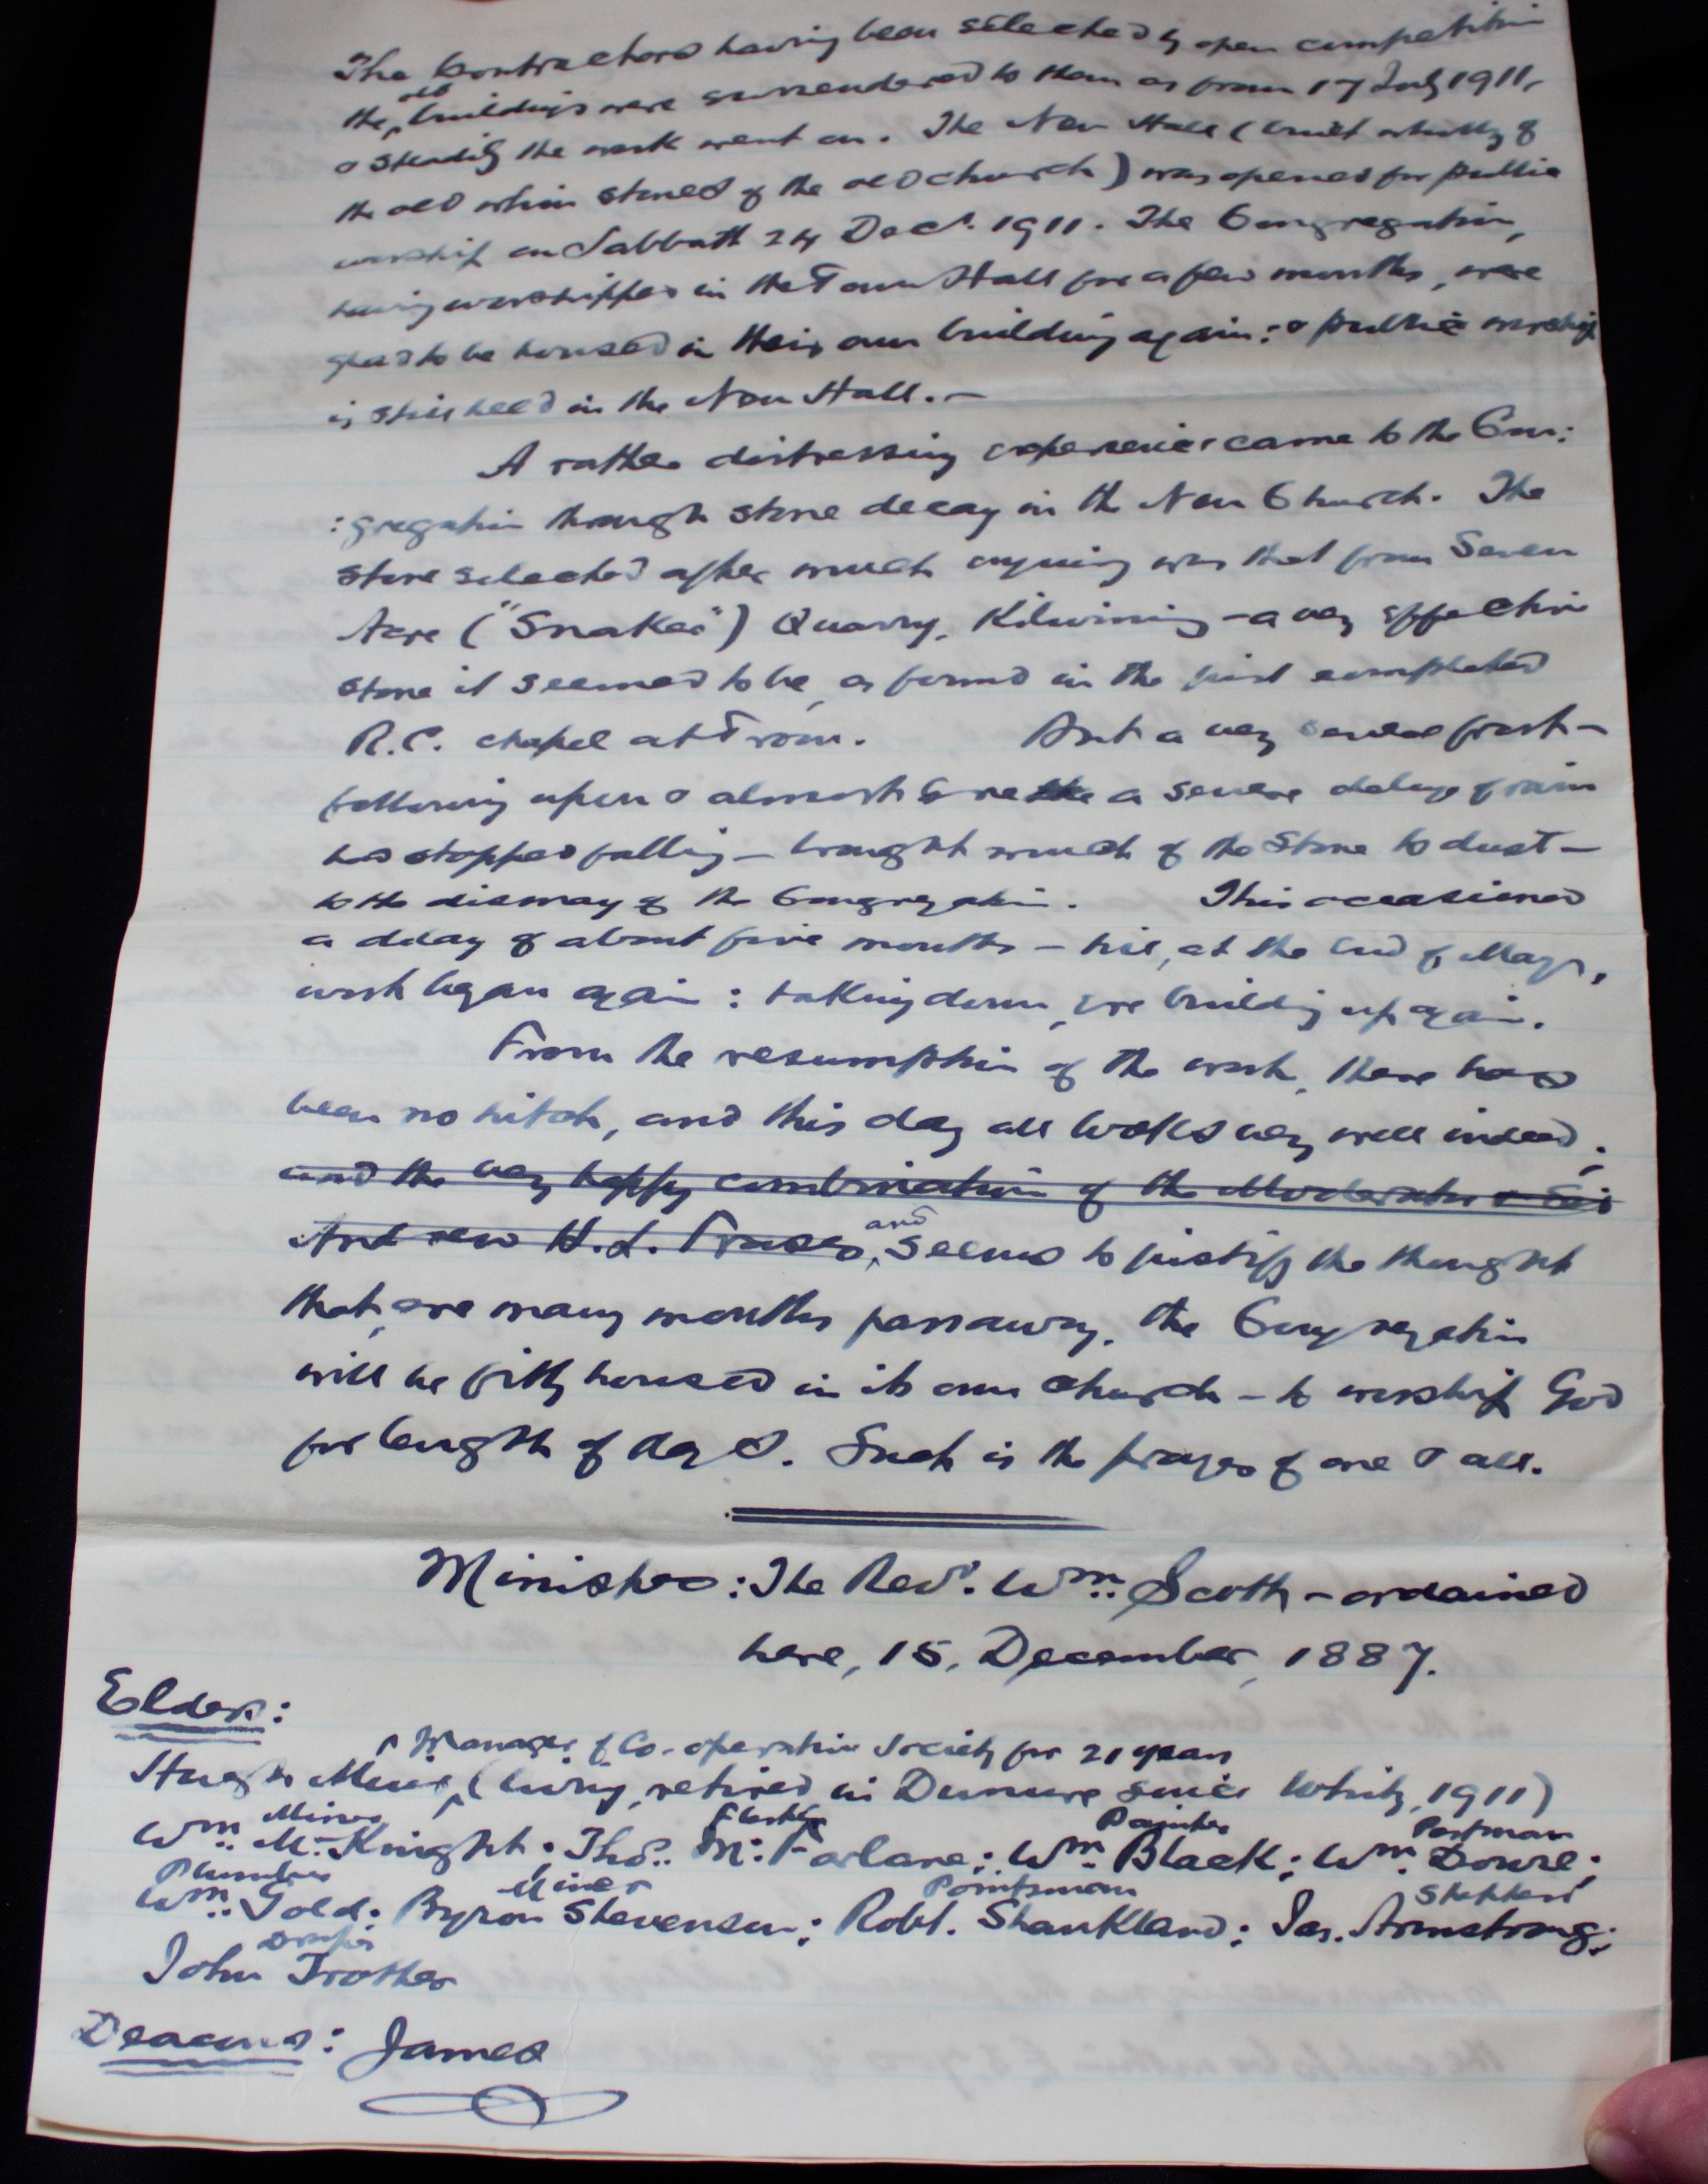 The Contractors having been selected by open competition
the old buildings were surrendered to them as from 17 July 1911,
& steadily the work went on. The New Hall (built wholly of
the old whin stones of the old church) was opened for public
worship on Sabbath 24 Decr. 1911. The Congregation,
having worshipped in the Town Hall for a few months, were
glad to be housed in their own building again: & public worship
is still held in the New Hall.—
A rather distressing experience came to the Con:
:gregation through stone decay in the New Church. The
stone selected after much inquiry was that from Seven
Acre ("Snakes") Quarry, Kilwinning – a very effective
stone it seemed to be, as found in the just completed
R.C. chapel at Troon. But a very severe frost –
following upon & almost ere a severe deluge of rain
had stopped falling – brought much of the stone to dust –
to the dismay of the Congregation. This occasioned
a delay of about five months – till, at the end of May,
work began again: taking down, ere building up again.
From the resumption of the work, there has
been no hitch, and this day all looks very well indeed;
and the very happy combination of the Moderator & Sir
Andrew H. L. Fraser, and seems to justify the thought
that, ere many months pass away, the Congregation
will be fitly housed in its own church – to worship God
for length of days. Such is the prayer of one & all.
Minister: The Revd. Wm. Scott – ordained
here, 15, December, 1887.
Elders:
Manager of Co-operative Society for 21 years
Hugh Muir (living, retired in Dunure since Whity, 1911)
Miner Flesher Painter Postman
Wm. McKnight; Thos. McFarlane; Wm. Black; Wm. Dowie;
Plumber Miner Pointsman Shepherd
Wm. Gold; Byron Stevenson; Robt. Shankland; Jas. Armstrong;
Draper
John Trotter
Deacons: James